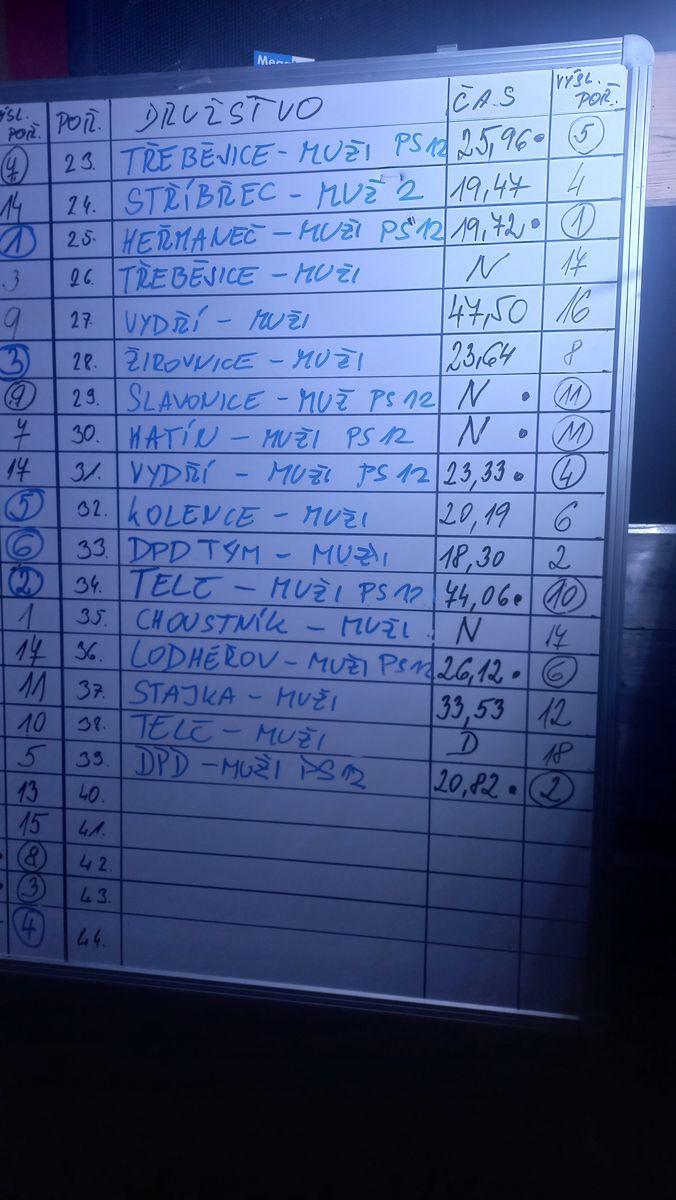 Mega
VÝSL. POŘ. POŘ. DRUŽSTVO ČAS VÝSL. POŘ.
23. TŘEBĚJICE – MUŽI PS12 25,96• 5
14 24. STŘÍBŘEC – MUŽ 2 19,47 4
1 25. HEŘMANEČ – MUŽI PS12 19,72• 1
3 26. TŘEBĚJICE – MUŽI N 17
9 27. VYDŘÍ – MUŽI 47,50 16
3 28. ŽIROVNICE – MUŽI 23,64 8
9 29. SLAVONICE – MUŽ PS12 N • 11
7 30. HATÍN – MUŽI PS12 N • 11
17 31. VYDŘÍ – MUŽI PS12 23,33• 4
5 32. KOLENCE – MUŽI 20,19 6
6 33. DPD TÝM – MUŽI 18,30 2
2 34. TELČ – MUŽI PS12 74,06• 10
1 35. CHOUSTNÍK – MUŽI N 17
17 36. LODHÉŘOV – MUŽI PS12 26,12• 6
11 37. STAJKA – MUŽI 33,53 12
10 38. TELČ – MUŽI D 18
5 39. DPD – MUŽI PS12 20,82• 2
13 40.
15 41.
8 42.
3 43.
4 44.